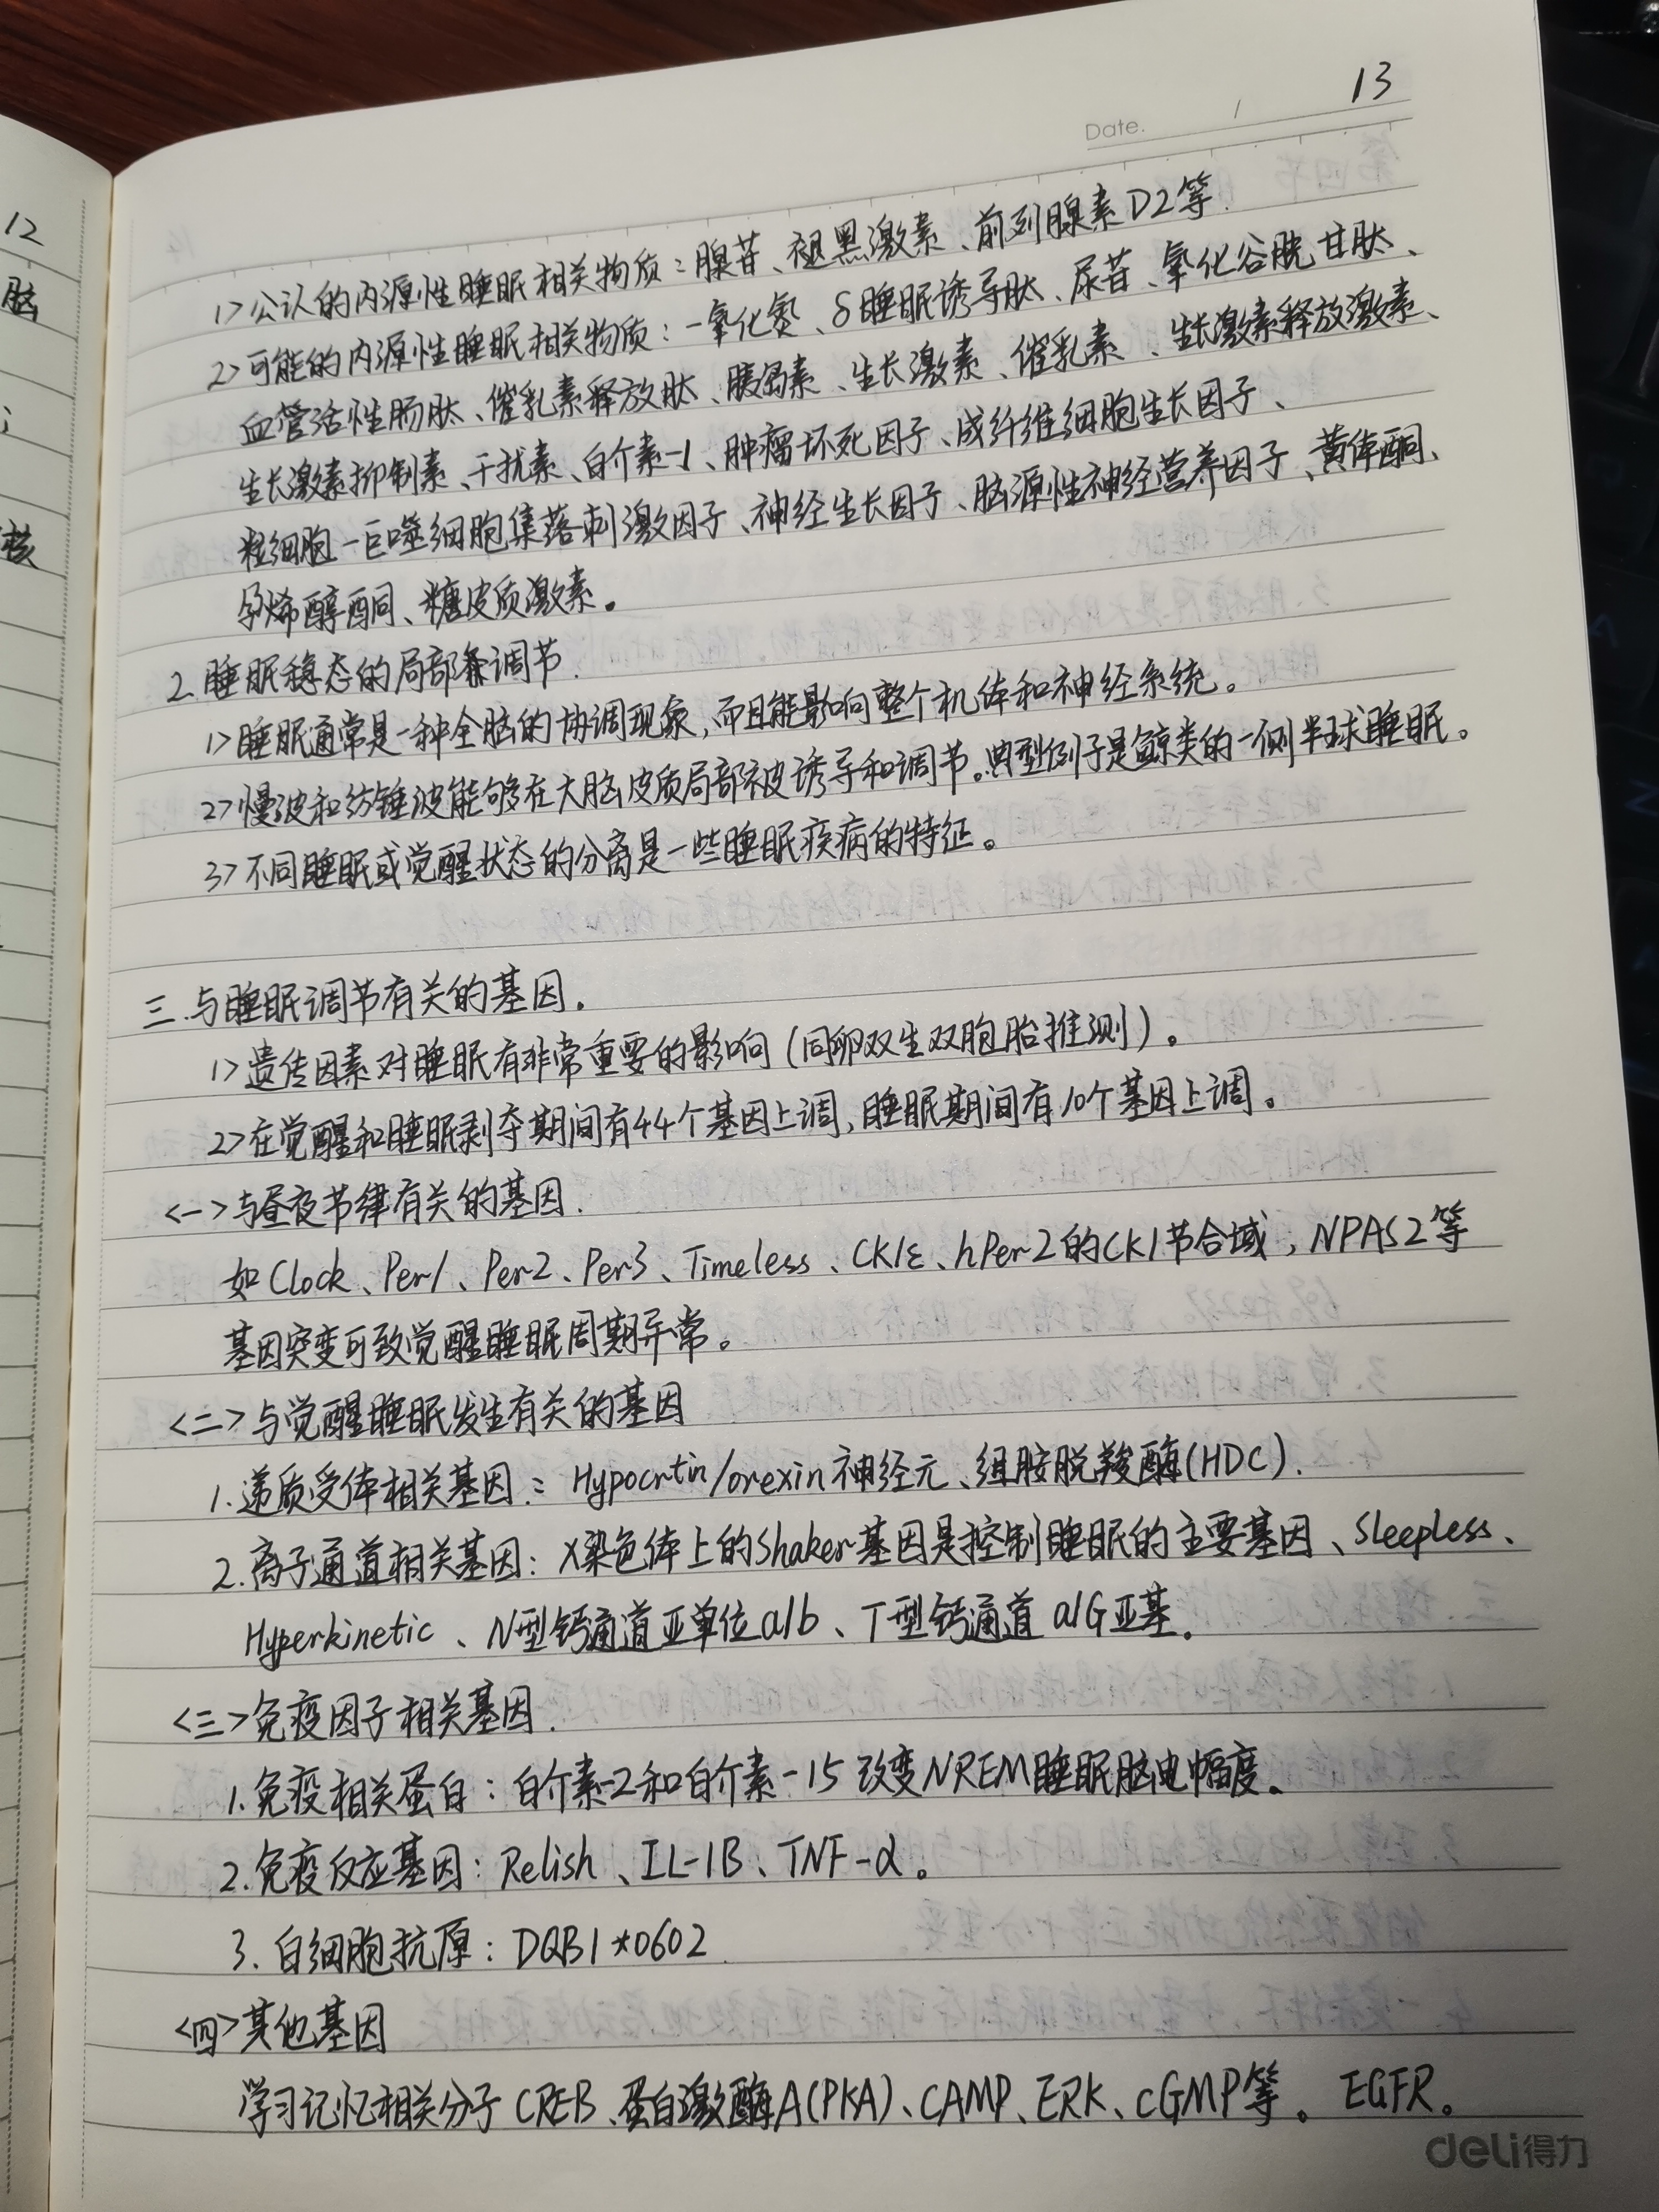 13
Date. /
1> 公认的内源性睡眠相关物质：腺苷、褪黑激素、前列腺素D2等.
2> 可能的内源性睡眠相关物质：一氧化氮、δ睡眠诱导肽、尿苷、氧化谷胱甘肽、
血管活性肠肽、催乳素释放肽、胰岛素、生长激素、催乳素、生长激素释放激素、
生长激素抑制素、干扰素、白介素-1、肿瘤坏死因子、成纤维细胞生长因子、
粒细胞-巨噬细胞集落刺激因子、神经生长因子、脑源性神经营养因子、黄体酮、
孕烯醇酮、糖皮质激素。
2. 睡眠稳态的局部调节.
1> 睡眠通常是一种全脑的协调现象，而且能影响整个机体和神经系统。
2> 慢波和纺锤波能够在大脑皮质局部被诱导和调节。典型例子是鲸类的一侧半球睡眠。
3> 不同睡眠或觉醒状态的分离是一些睡眠疾病的特征。
三. 与睡眠调节有关的基因.
1> 遗传因素对睡眠有非常重要的影响（同卵双生双胞胎推测）。
2> 在觉醒和睡眠剥夺期间有44个基因上调，睡眠期间有10个基因上调。
<一> 与昼夜节律有关的基因.
如Clock、Per1、Per2、Per3、Timeless、CK1ε、hPer2的CK1节合域，NPAS2等
基因突变可致觉醒睡眠周期异常。
<二> 与觉醒睡眠发生有关的基因
1. 递质受体相关基因：Hypocrtin/orexin神经元、组胺脱羧酶(HDC).
2. 离子通道相关基因：X染色体上的Shaker基因是控制睡眠的主要基因、Sleepless、
Hyperkinetic、N型钙通道亚单位α1b、T型钙通道α1G亚基.
<三> 免疫因子相关基因.
1. 免疫相关蛋白：白介素-2和白介素-15改变NREM睡眠脑电幅度。
2. 免疫反应基因：Relish、IL-1B、TNF-α。
3. 白细胞抗原：DQB1*0602
<四> 其他基因
学习记忆相关分子CREB、蛋白激酶A(PKA)、CAMP、ERK、cGMP等。EGFR。
deli得力
12
脑
;
核